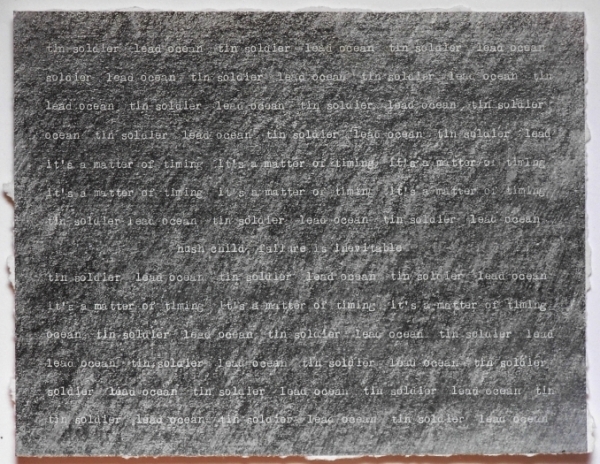 tin soldier lead ocean tin soldier lead ocean tin soldier lead ocean
soldier lead ocean tin soldier lead ocean tin soldier lead ocean tin
lead ocean tin soldier lead ocean tin soldier lead ocean tin soldier
ocean tin soldier lead ocean tin soldier lead ocean tin soldier lead
it's a matter of timing it's a matter of timing it's a matter of timing
it's a matter of timing it's a matter of timing it's a matter of timing
tin soldier lead ocean tin soldier lead ocean tin soldier lead ocean
hush child, failure is inevitable
tin soldier lead ocean tin soldier lead ocean tin soldier lead ocean
it's a matter of timing it's a matter of timing it's a matter of timing
ocean tin soldier lead ocean tin soldier lead ocean tin soldier lead
lead ocean tin soldier lead ocean tin soldier lead ocean tin soldier
soldier lead ocean tin soldier lead ocean tin soldier lead ocean tin
tin soldier lead ocean tin soldier lead ocean tin soldier lead ocean